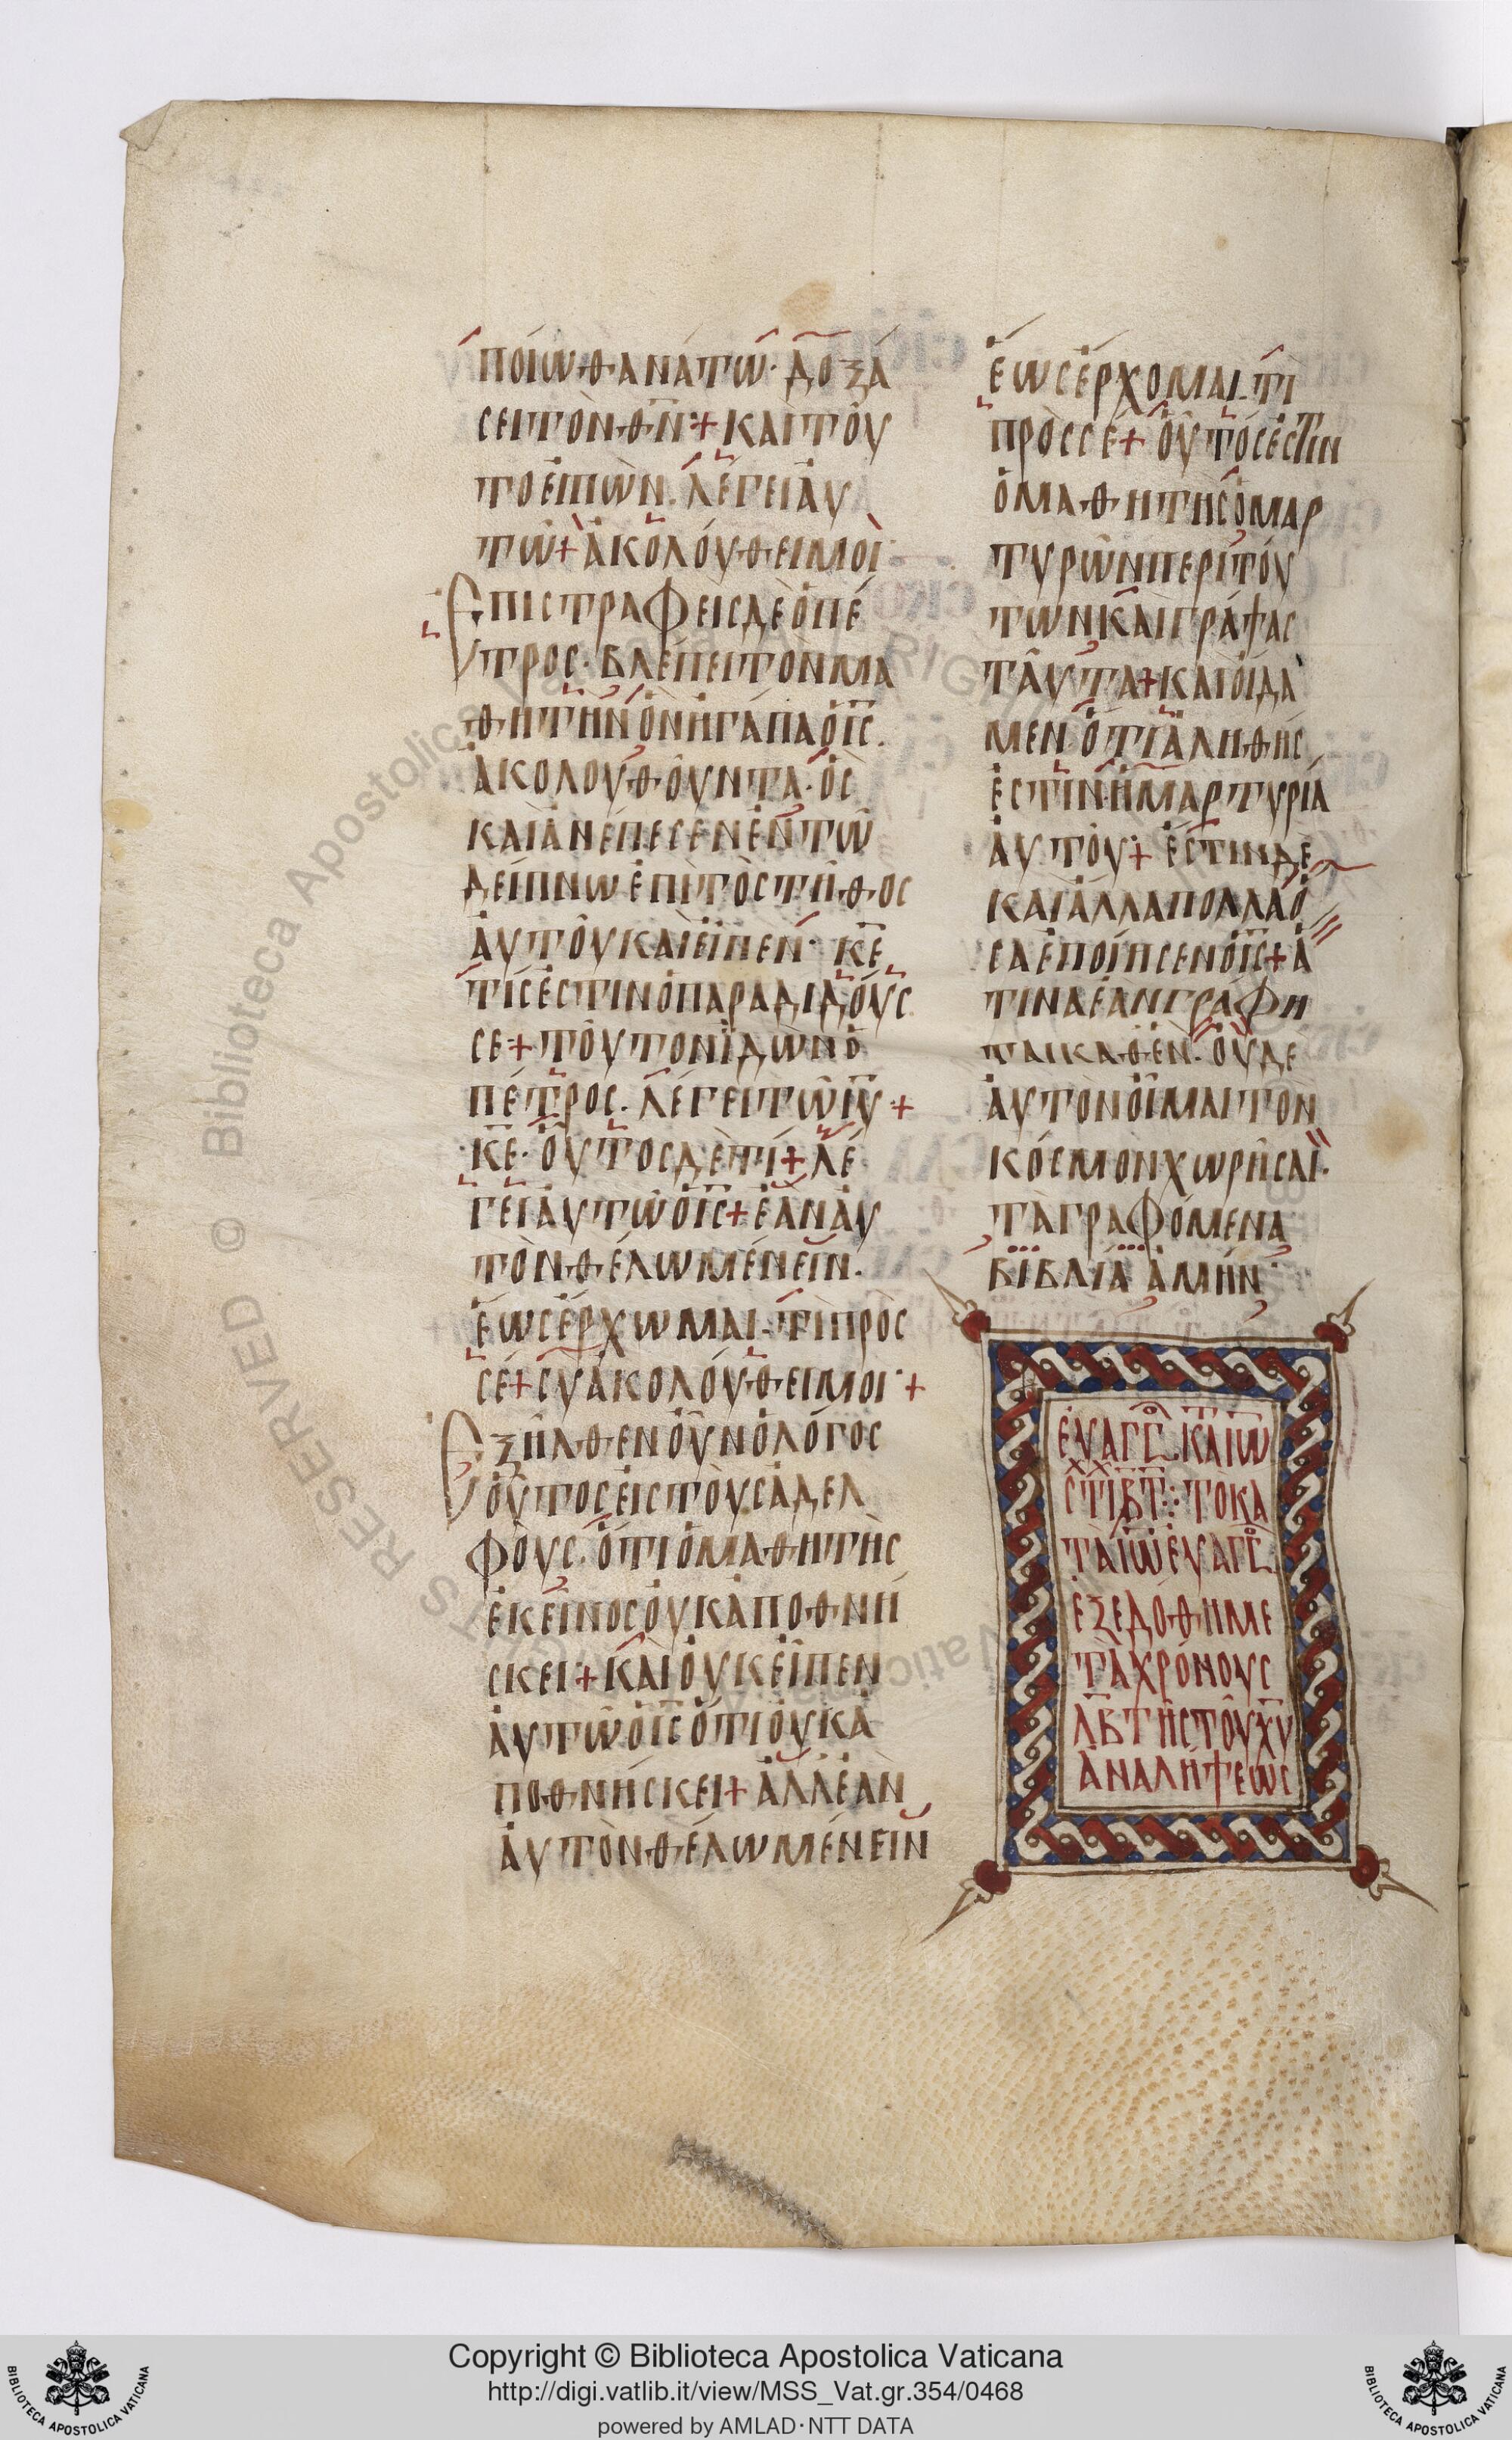 ποίω θανάτω· δοξά
σει τὸν θ̅ν̅ + καὶ τοῦ
το εἰπὼν. λέγει αὐ
τῶ + ἀκολόυθει μοὶ
Επιστραφεὶς δὲ ὁ πέ
τρος· βλέπει τὸν μα
θητὴν ὃν ἠγάπα ὁ ι̅ς̅.
ἀκολουθοῦντα· ὃς
καὶ ἀνέπεσεν ἐν τῶ
δείπνω ἐπὶ τὸ στῆθος
ἀυτοῦ καὶ εἶπεν· κ̅ε̅
τίς ἐστιν ὁ παραδιδόυς
σε + τοῦτον ἰδὼν ὁ
πέτρος. λέγει τῶ ι̅υ̅ +
κ̅ε̅· οὗτος δὲ τί + λέ
γει ἀυτῶ ὁ ι̅ς̅ + ἐὰν ἀυ
τὸν θέλω μένειν.
ἕως ἔρχωμαι. τί πρὸς
σέ + σὺ ἀκολόυθει μοι +
Εξῆλθεν οὖν ὁ λόγος
οὗτος εἰς τοὺς ἀδελ
φοὺς. ὅτι ὁ μαθητὴς
ἐκεῖνος οὐκ ἀποθνή
σκει + καὶ οὐκ εἶπεν
ἀυτῶ ὁ ι̅ς̅ ὅτι οὐκ ἀ
ποθνήσκει + ἀλλ ἐὰν
ἀυτὸν θέλω μένειν
ἕως ἔρχομαι. τί
πρὸς σέ + οὗτός ἐστιν
ὁ μαθητὴς ὁ μαρ
τυρῶν περὶ τού
των καὶ γράψας
ταῦτα + καὶ οἴδα
μεν ὅτι ἀληθής
ἐστιν ἡ μαρτυρία
ἀυτοῦ + ἔστιν δὲ
καὶ ἄλλα πολλὰ ὅ
σα ἐποίησεν ὁ ι̅ς̅ + ἅ
τινα ἐὰν γράφη
ται καθ ἕν. οὐδε
ἀυτὸν οἶμαι τὸν
κόσμον χωρῆσαι·
τὰ γραφόμενα
βιβλία ἀμήν
ἐυαγγ κ̅α̅ι̅ω̅
στ̅ι̅ ͵β̅τ̅ : τὸ κα
τὰ ι̅ω̅ ἐυαγγ
ἐξεδόθη με
τὰ χρόνους
λ̅β̅ τῆς τοῦ χ̅υ̅
ἀναλήψεως
Copyright © Biblioteca Apostolica Vaticana
http://digi.vatlib.it/view/MSS_Vat.gr.354/0468
powered by AMLAD·NTT DATA